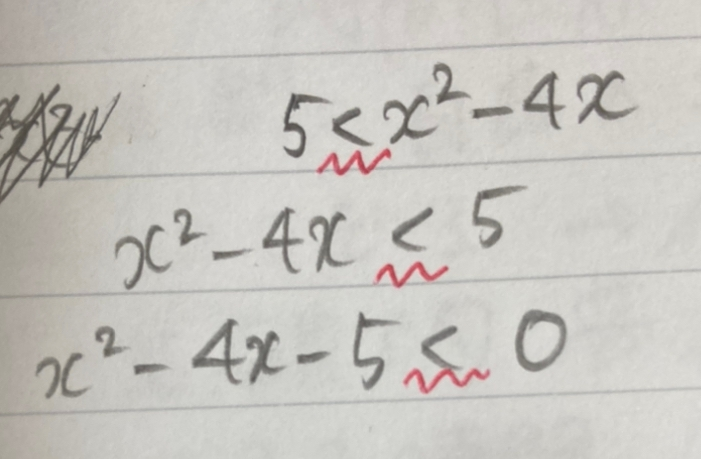 5 < x² - 4x
x² - 4x < 5
x² - 4x - 5 < 0